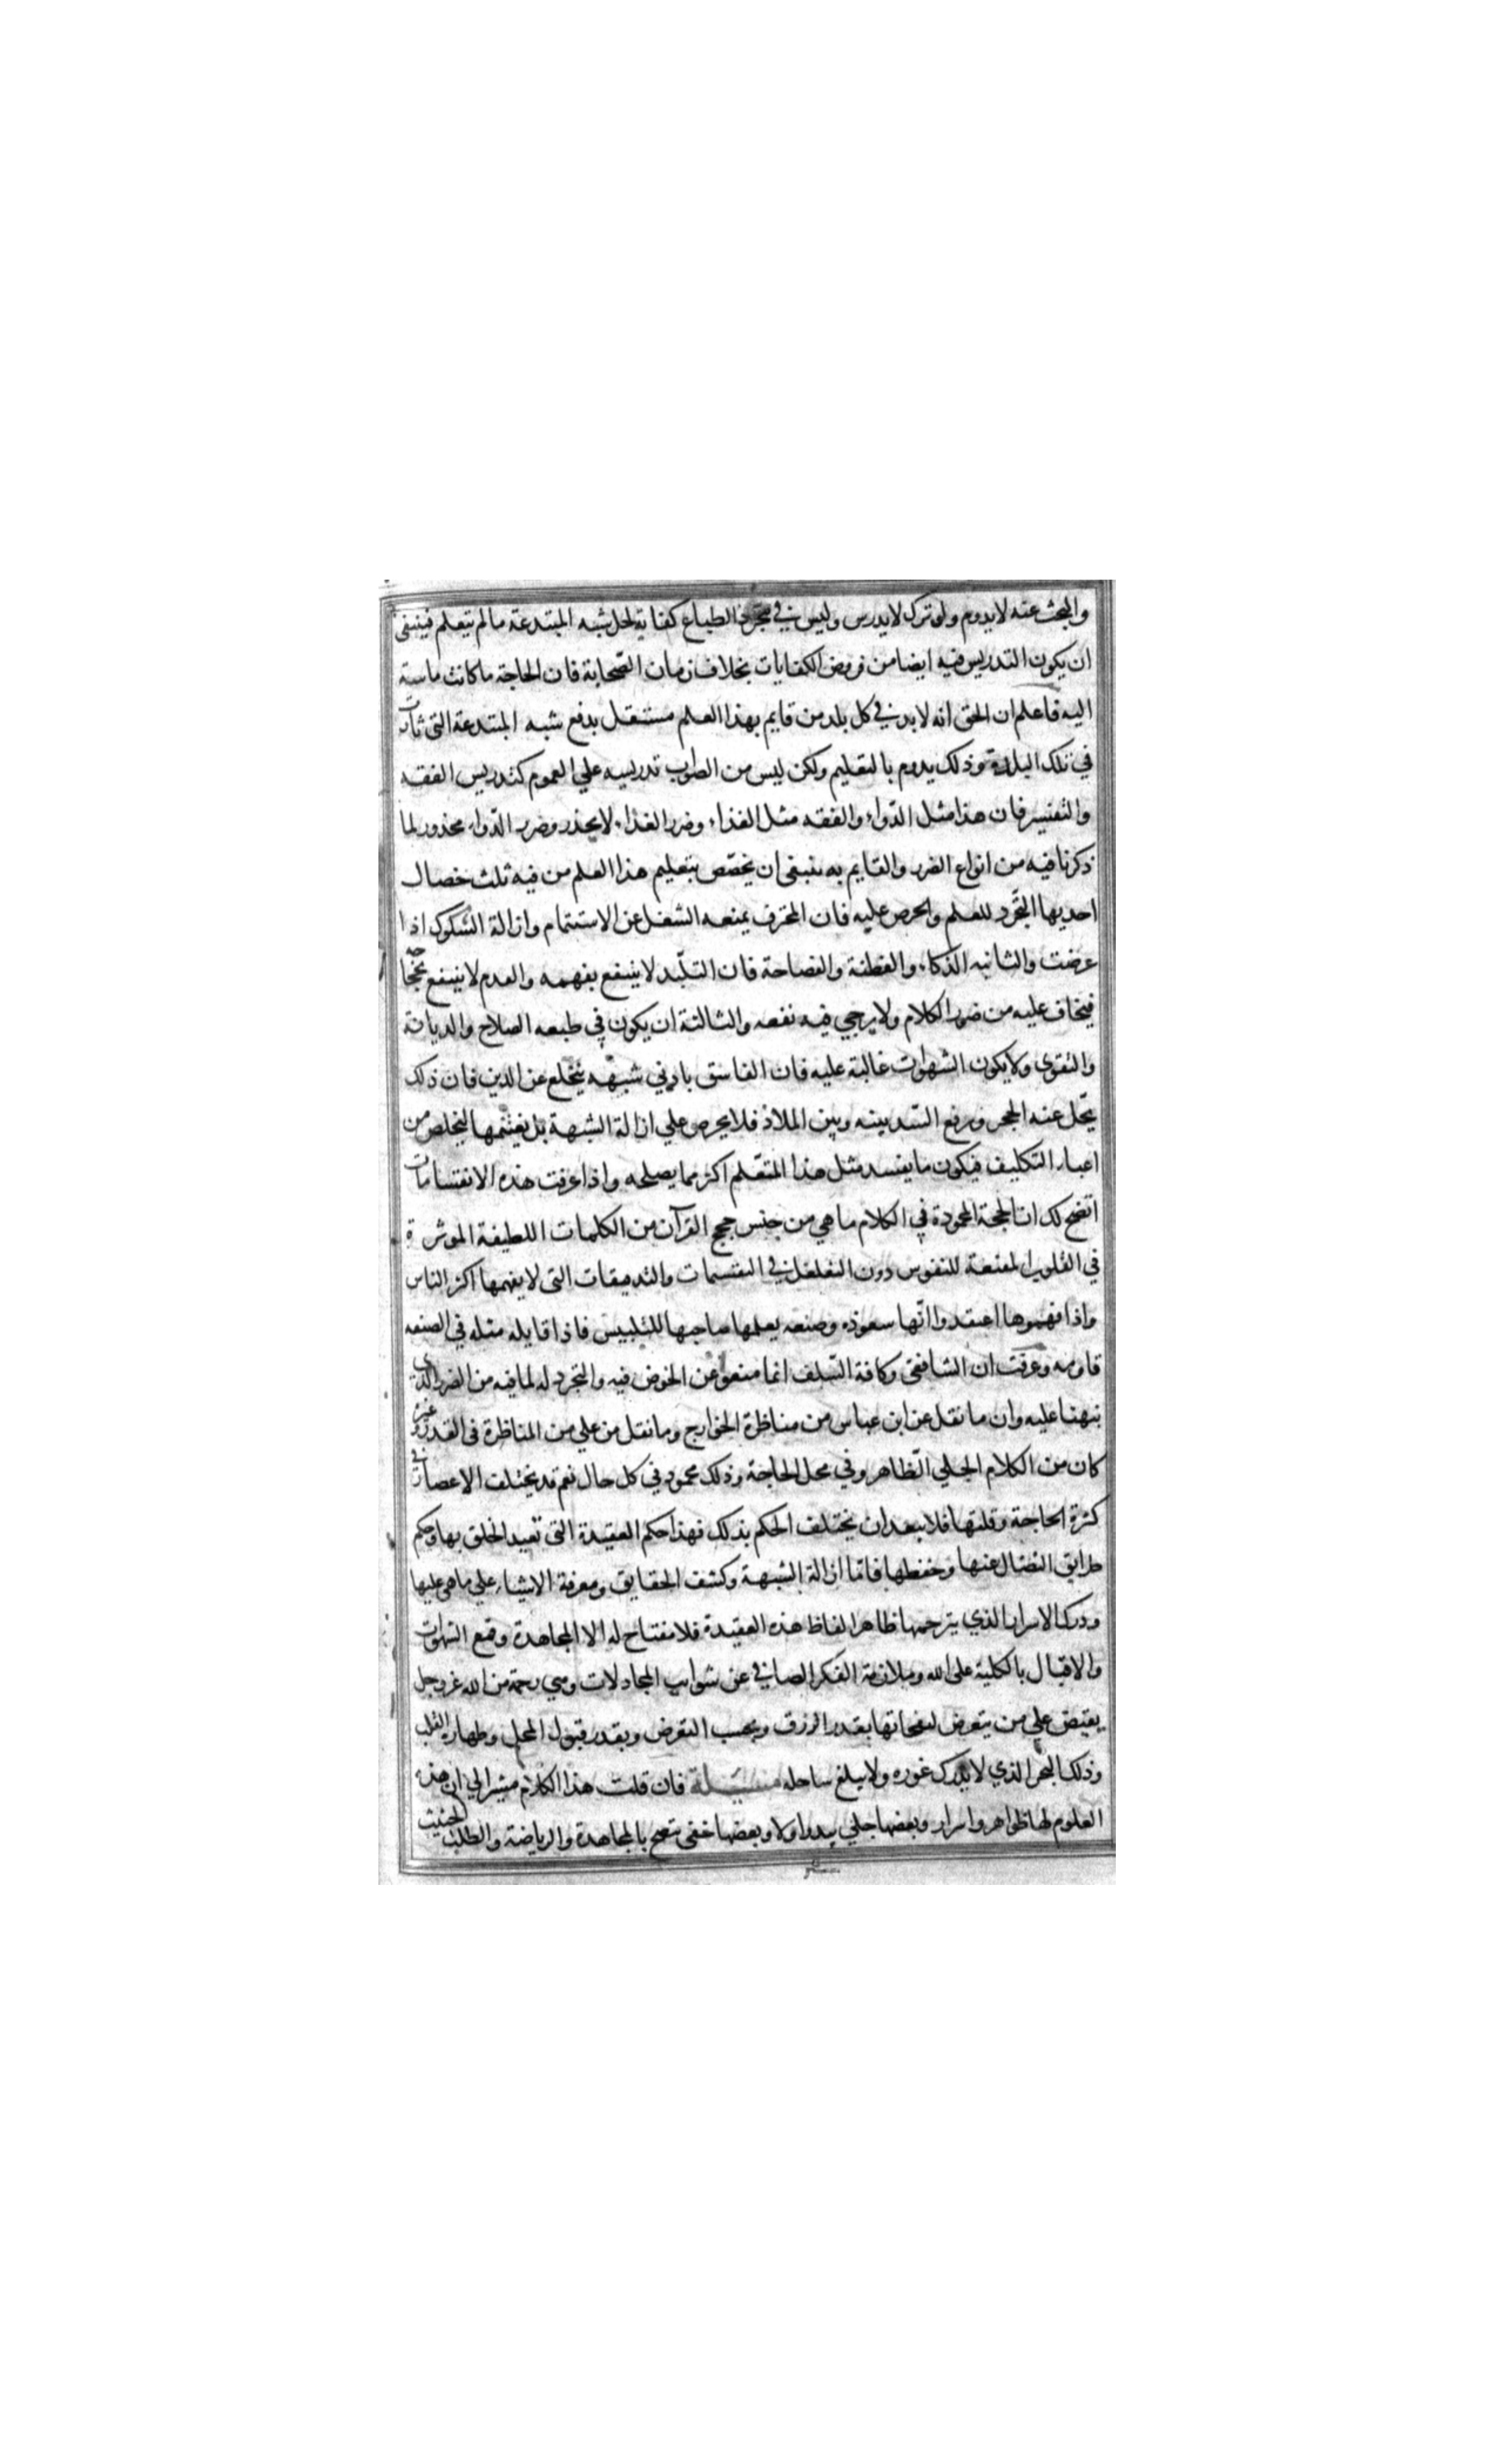 والبحث عنه لا يدوم ولو ترك لا يدرس وليس في مجرد الطباع كفاية لحل شبه المبتدعة ما لم يتعلم فينبغي
ان يكون التدريس فيه ايضا من فروض الكفايات بخلاف زمان الصّحابة فان الحاجة ما كانت ماسة
اليه فاعلم ان الحق انه لا بد في كل بلد من قايم بهذا العلم مستقل بدفع شبه المبتدعة التي ثارت
في تلك البلدة وذلك يدوم بالتعليم ولكن ليس من الصواب تدريسه علي العموم كتدريس الفقه
والتفسير فان هذا مثل الدّواء والفقه مثل الغذاء وضرر الغذاء لا يحذر وضرر الدّواء محذور لما
ذكرنا فيه من انواع الضرر والقايم به ينبغي ان يخصّص بتعليم هذا العلم من فيه ثلث خصال
احديها التجّرد للعلم والحرص عليه فان المحترف يمنعه الشغل عن الاستتمام وازالة الشكوك اذا
عرضت والثانيه الذكاء والفطنة والفصاحة فان التلبّد لا ينتفع بفهمه والفدم لا ينتفع بحجاجه
فيخاف عليه من ضرر الكلام ولا يرجي فيه نفعه والثالثة ان يكون في طبعه الصلاح والديانة
والتقوي ولا يكون الشهوات غالبة عليه فان الفاسق بادني شبهه ينخلع عن الدين فان ذلك
يحّل عنه الحجر ورفع السّد بينه وبين الملاذ فلا يحرص علي ازالة الشبهة بل يغتنمها ليتخلص من
اعباء التكليف فيكون ما يفسد مثل هذا المتعّلم اكثر مما يصلحه واذا عرفت هذه الانقسامات
اتضح لك ان الحجة المحمودة في الكلام ما هي من جنس حجج القرآن من الكلمات اللطيفة الموثرة
في القلوب المقنعة للنفوس دون التغلغل في التقسيمات والتدقيقات التي لا يفهمها اكثر الناس
واذا فهموها اعتقدوا انّها سعوذه وصنعه يعلمها صاحبها للتلبيس فاذا قابله مثله في الصنعه
قاومه وعرفت ان الشافعي وكافة السّلف انما منعوا عن الخوض فيه والتجرد له لما فيه من الضرر الذي
نبهنا عليه وان ما نقل عن ابن عباس من مناظرة الخوارج وما نقل من علي من المناظرة في القدر وغيره
كان من الكلام الجلي الظّاهر وفي محل الحاجة وذلك محمود في كل حال نعم قد يختلف الاعصار في
كثرة الحاجة وقلتها فلا يبعد ان يختلف الحكم بذلك فهذا حكم العقيدة التي تعبد الخلق بها وحكم
طرايق النضال عنها وحفظها فامّا ازالة الشبهة وكشف الحقايق ومعرفة الاشياء علي ما هي عليها
ودرك الاسرار الذي يترجمها ظاهر الفاظ هذه العقيدة فلا مفتاح له الا المجاهدة وقمع الشهوات
والاقبال بالكلية علي الله وملازمة الفكر الصافي عن شوايب المجادلات وهي رحمة من الله عز وجل
يفيض علي من يتعرض لنفحاتها بقدر الرزق وبحسب التعرض وبقدر قبول المحل وطهارة القلب
وذلك البحر الذي لا يدرك غوره ولا يبلغ ساحله مسئلة فان قلت هذا الكلام مشير الي ان هذه
العلوم لها ظواهر واسرار وبعضها جلي يبدو اولا وبعضها خفي يتضح بالمجاهدة والرياضة والطلب الحثيث